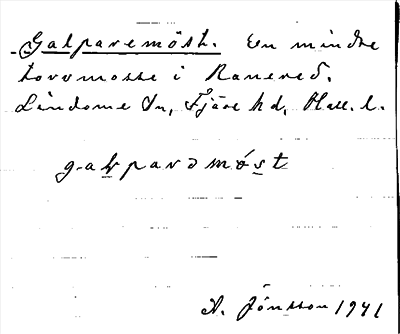 Galparemöst. En mindre
torvmosse i Ranered.
Lindome sn, Fjäre hd, Hall. l.
galparamóst
A. Jónsson 1941